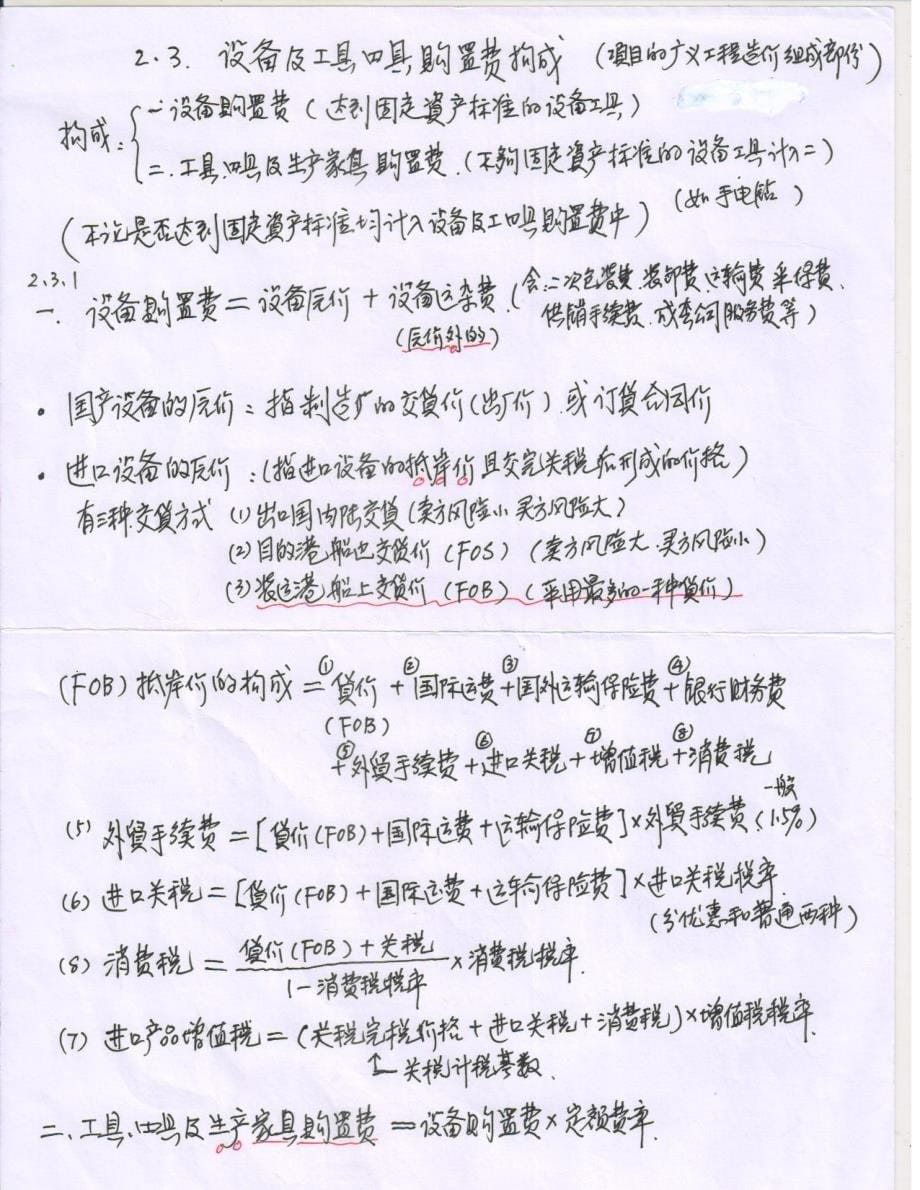 2.3. 设备及工具四具购置费构成 (项目的广义工程造价组成部份)
构成: 一 设备购置费 (达到固定資产标准的设备工具)
二. 工具四具及生产家具购置费. (不够固定資产标准的设备工具计入二)
(如手电钻)
(不论是否达到固定資产标准均计入设备及工四具购置费中)
2.3.1
一. 设备购置费 = 设备原价 + 设备运杂费. (含:二次包装费.装卸费.运输费.采保费.
供销手续费.成套公司服务费等)
(原价外的)
• 国产设备的原价: 指制造厂的交貨价(出厂价) 或订貨合同价
• 进口设备的原价: (指进口设备的抵岸价且交完关税后形成的价格)
有三种交貨方式 (1) 出口国内陆交貨 (卖方风险小 买方风险大)
(2) 目的港船边交貨价 (FOS) (卖方风险大.买方风险小)
(3) 装运港船上交貨价 (FOB) (采用最多的一种貨价)
(FOB) 抵岸价的构成 = ①貨价 + ②国际运费 + ③国外运输保险费 + ④银行财务费
(FOB)
+ ⑤外貿手续费 + ⑥进口关税 + ⑦增值税 + ⑧消费税
一般
(5) 外貿手续费 = [貨价(FOB)+国际运费+运输保险费] × 外貿手续费 (1.5%)
(6) 进口关税 = [貨价(FOB) + 国际运费 + 运输保险费] × 进口关税税率.
(分优惠和普通两种)
(8) 消费税 = 貨价(FOB) + 关税 / 1-消费税税率 × 消费税税率.
(7) 进口产品增值税 = (关税完税价格 + 进口关税 + 消费税) × 增值税税率.
↑ 关税计税基数.
二、工具.四具及生产家具购置费 = 设备购置费 × 定额费率.